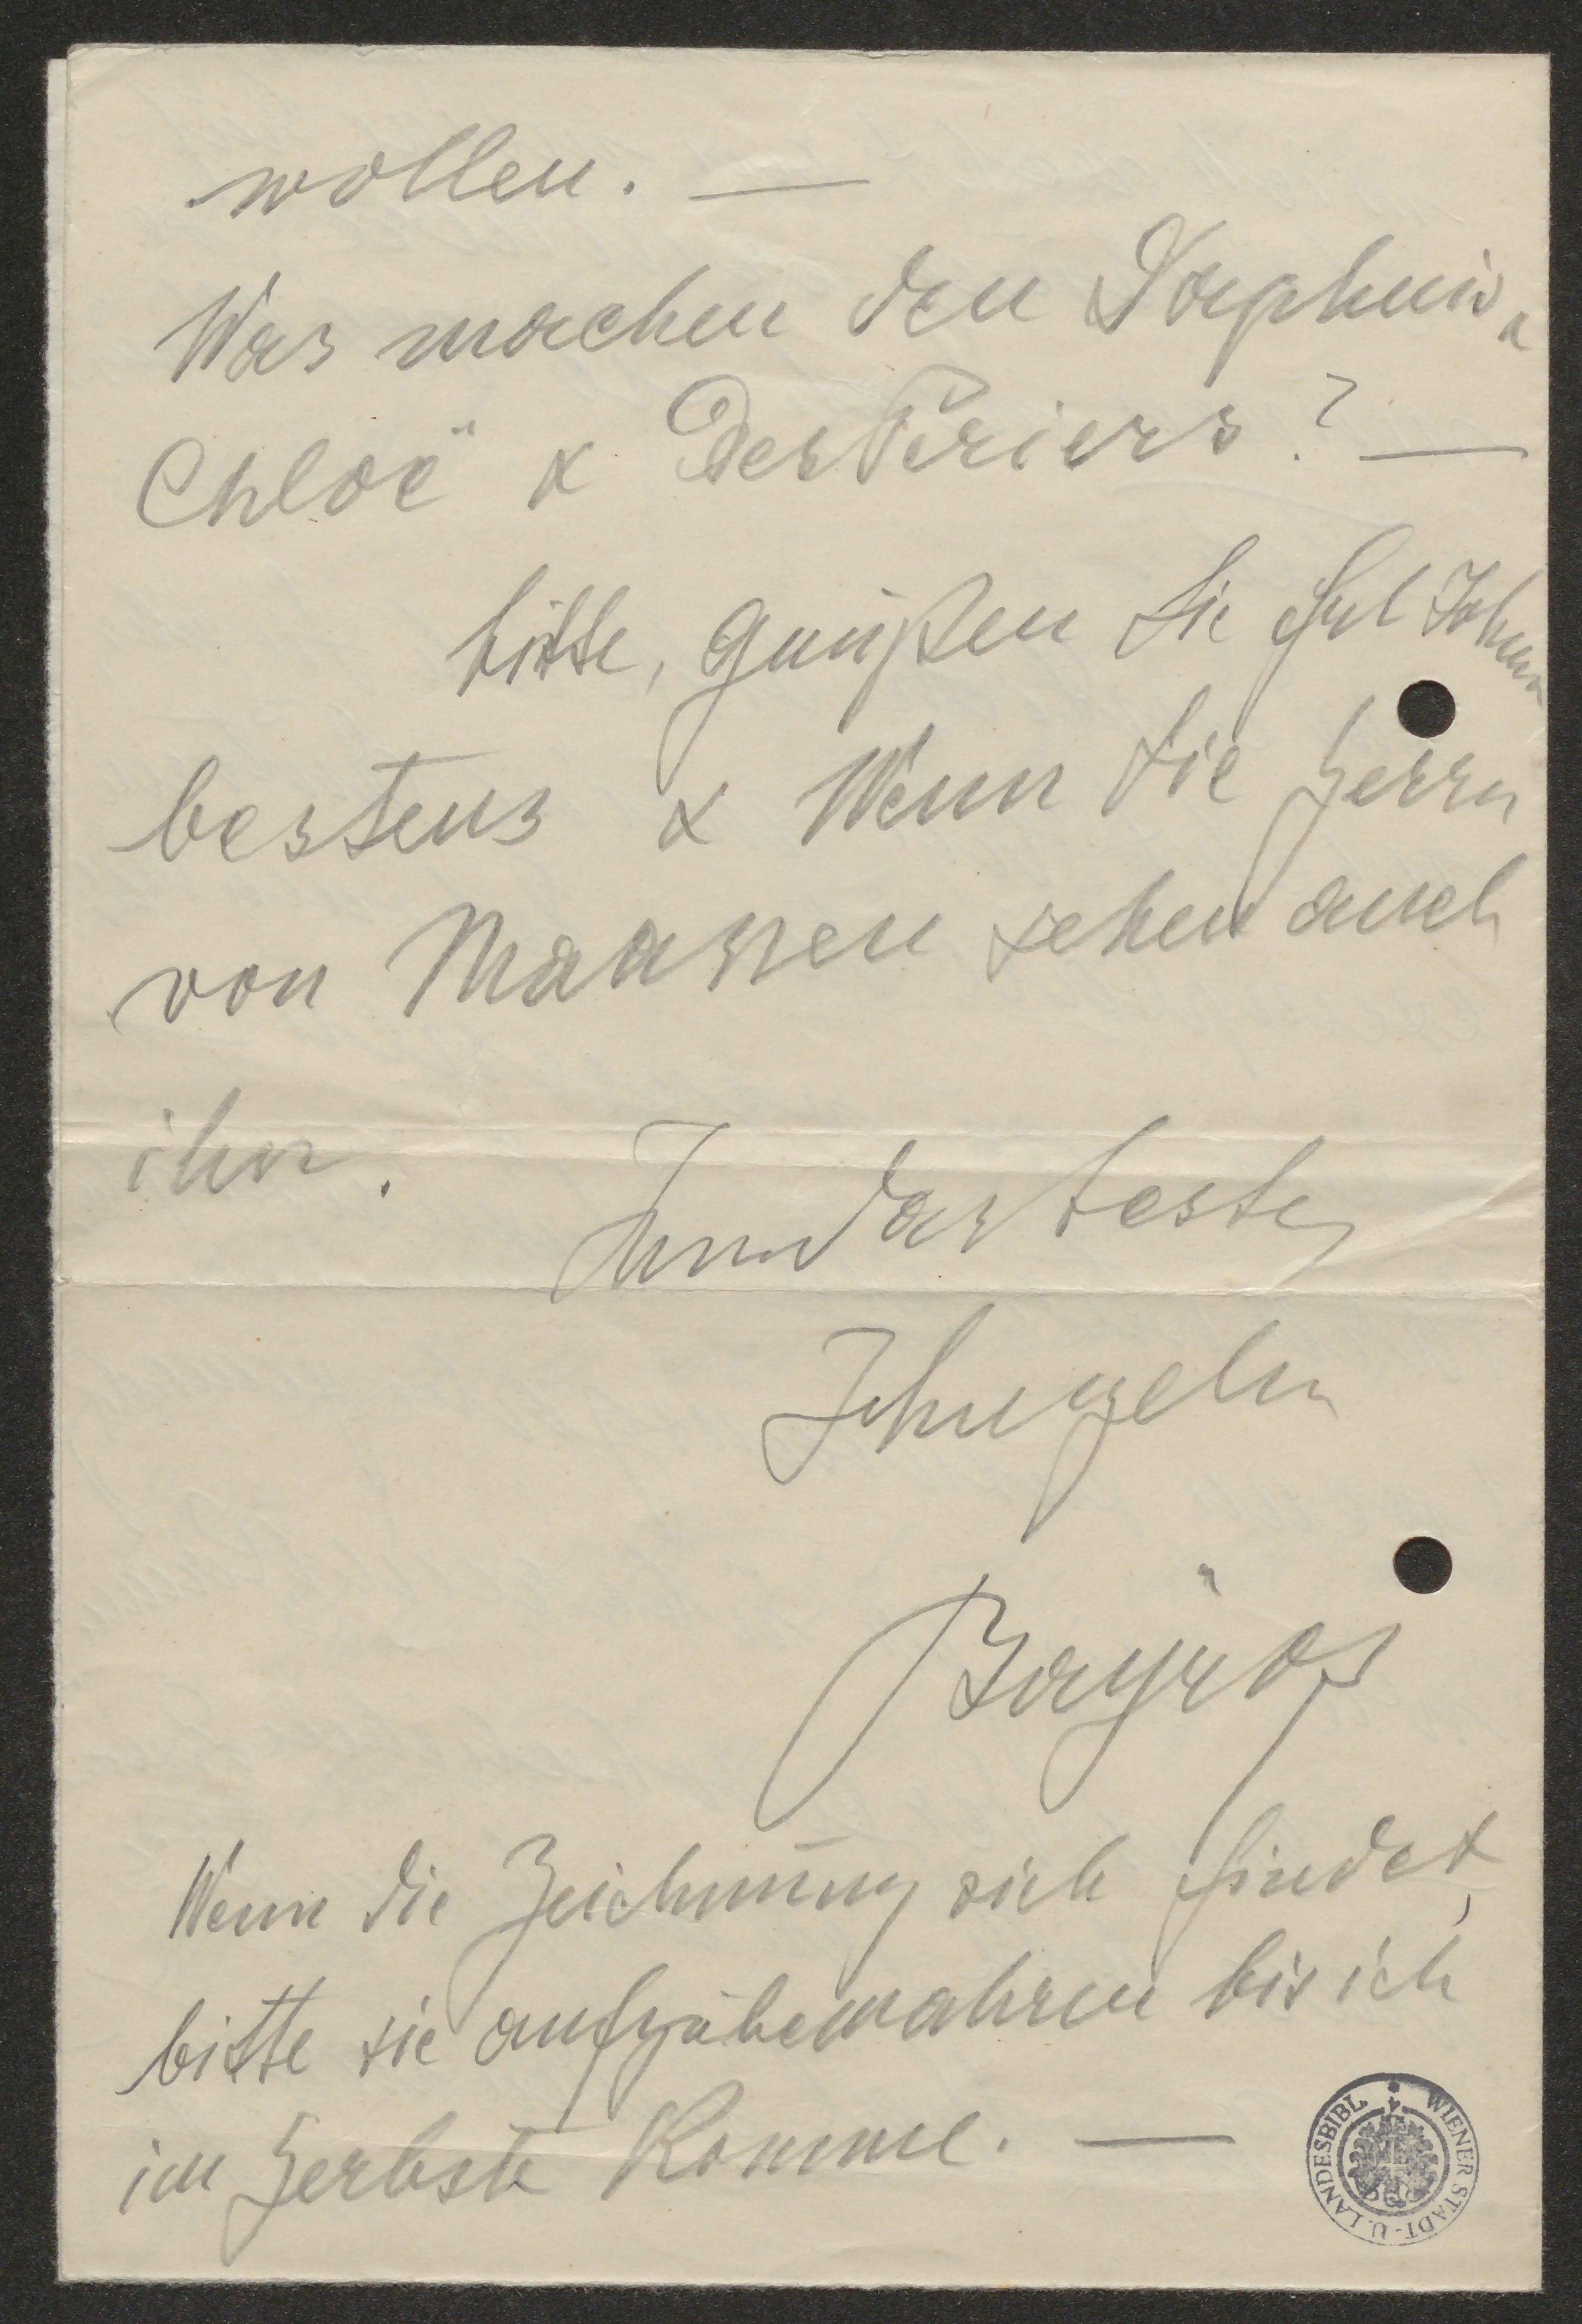 wollen. —
Was machen den Daphnis &
Chloë & Des Periers? —
bitte, grüßen Sie Frl
bestens & wenn Sie Herrn
von Maassen sehen auch
ihn.
das beste
Bayros
Wenn die Zeichnung sich findet,
bitte sie aufzubewahren bis ich
im Herbste komme. —
WIENER STADT- U. LANDESBIBL.